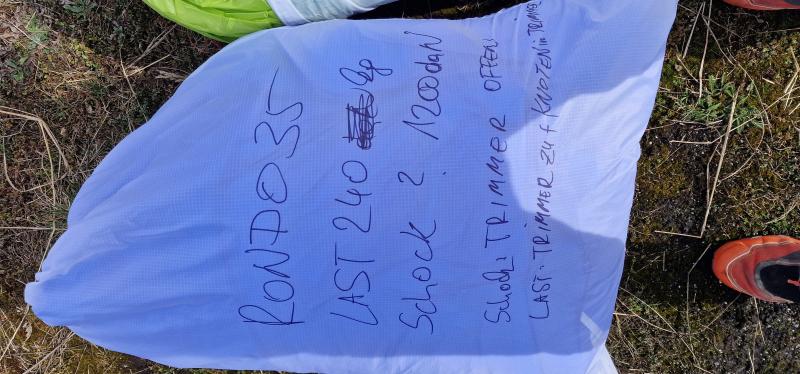 RONDO35
LAST 240 kg
SCHOCK ? 1200daN
SCHOCK: TRIMMER OFFEN
LAST: TRIMMER ZU + KNOTEN in TRIMMER